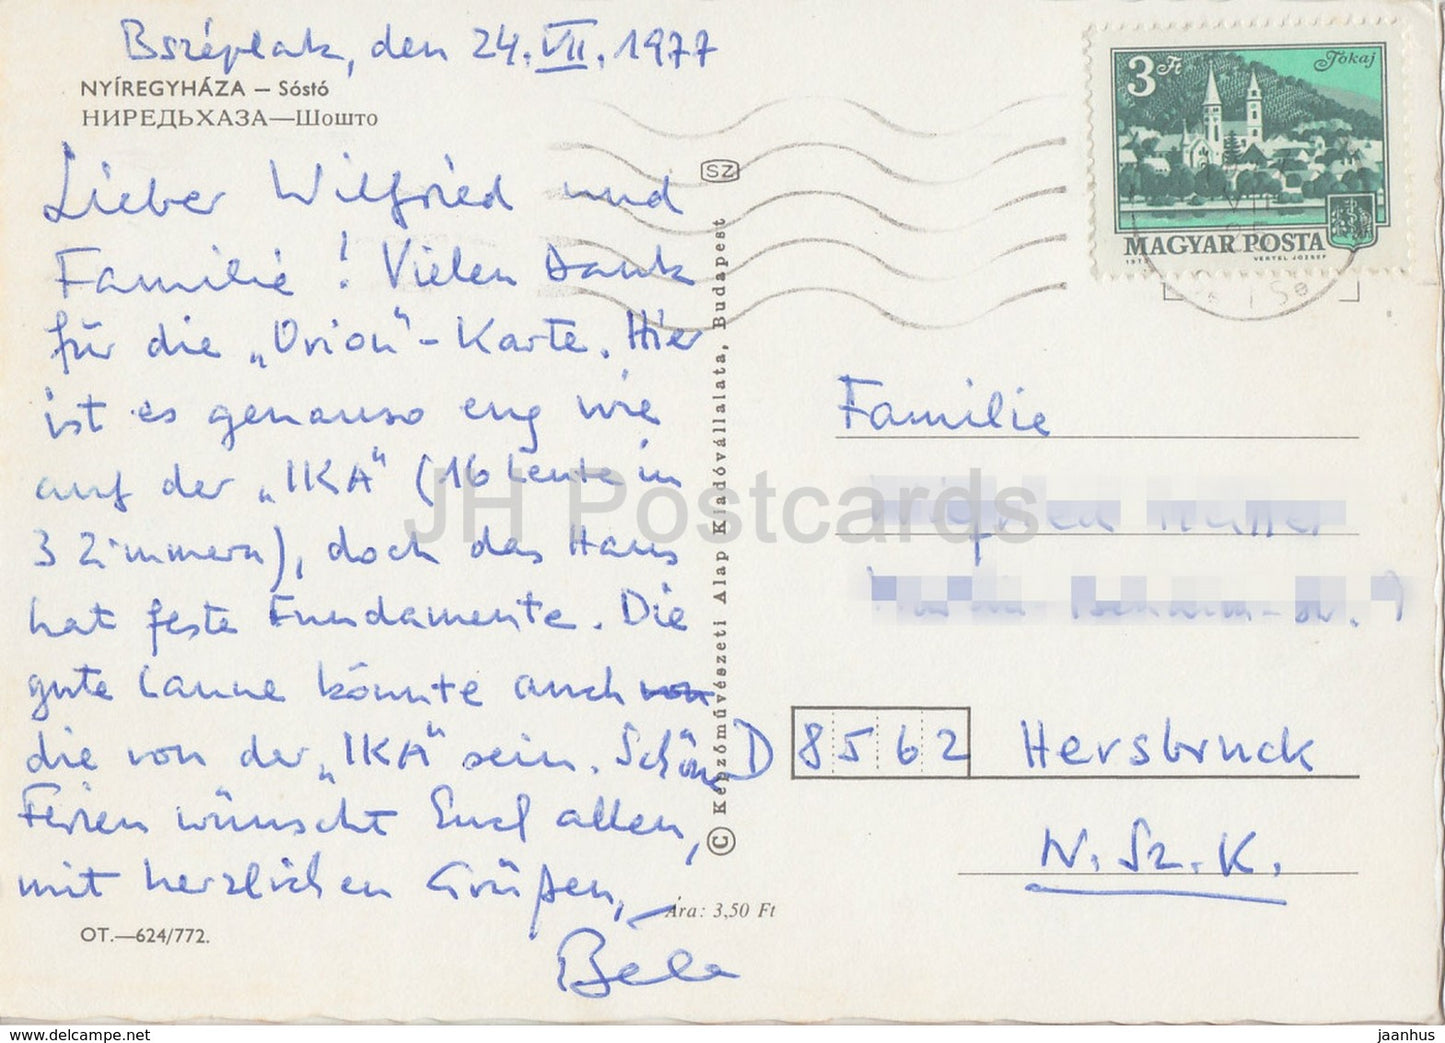 Bszéplak, den 24. VII. 1977
NYÍREGYHÁZA – Sóstó
НИРЕДЬХАЗА—Шошто
Lieber Wilfried und
Familie! Vielen Dank
für die „Orion"-Karte. Hier
ist es genauso eng wie
auf der „IKA" (16 Leute in
3 Zimmern), doch das Haus
hat feste Fundamente. Die
gute Laune könnte auch von
die von der „IKA" sein. Schöne
Ferien wünscht Euch allen,
mit herzlichen Grüßen,
Béla
OT.—624/772.
Ára: 3,50 Ft
SZ
© Képzőművészeti Alap Kiadóvállalata, Budapest
3 Ft
Tokaj
MAGYAR POSTA
VERTEL JÓZSEF
Familie
D 8562 Hersbruck
N. Sz. K.
JH Postcards
www.delcampe.net
jaanhus